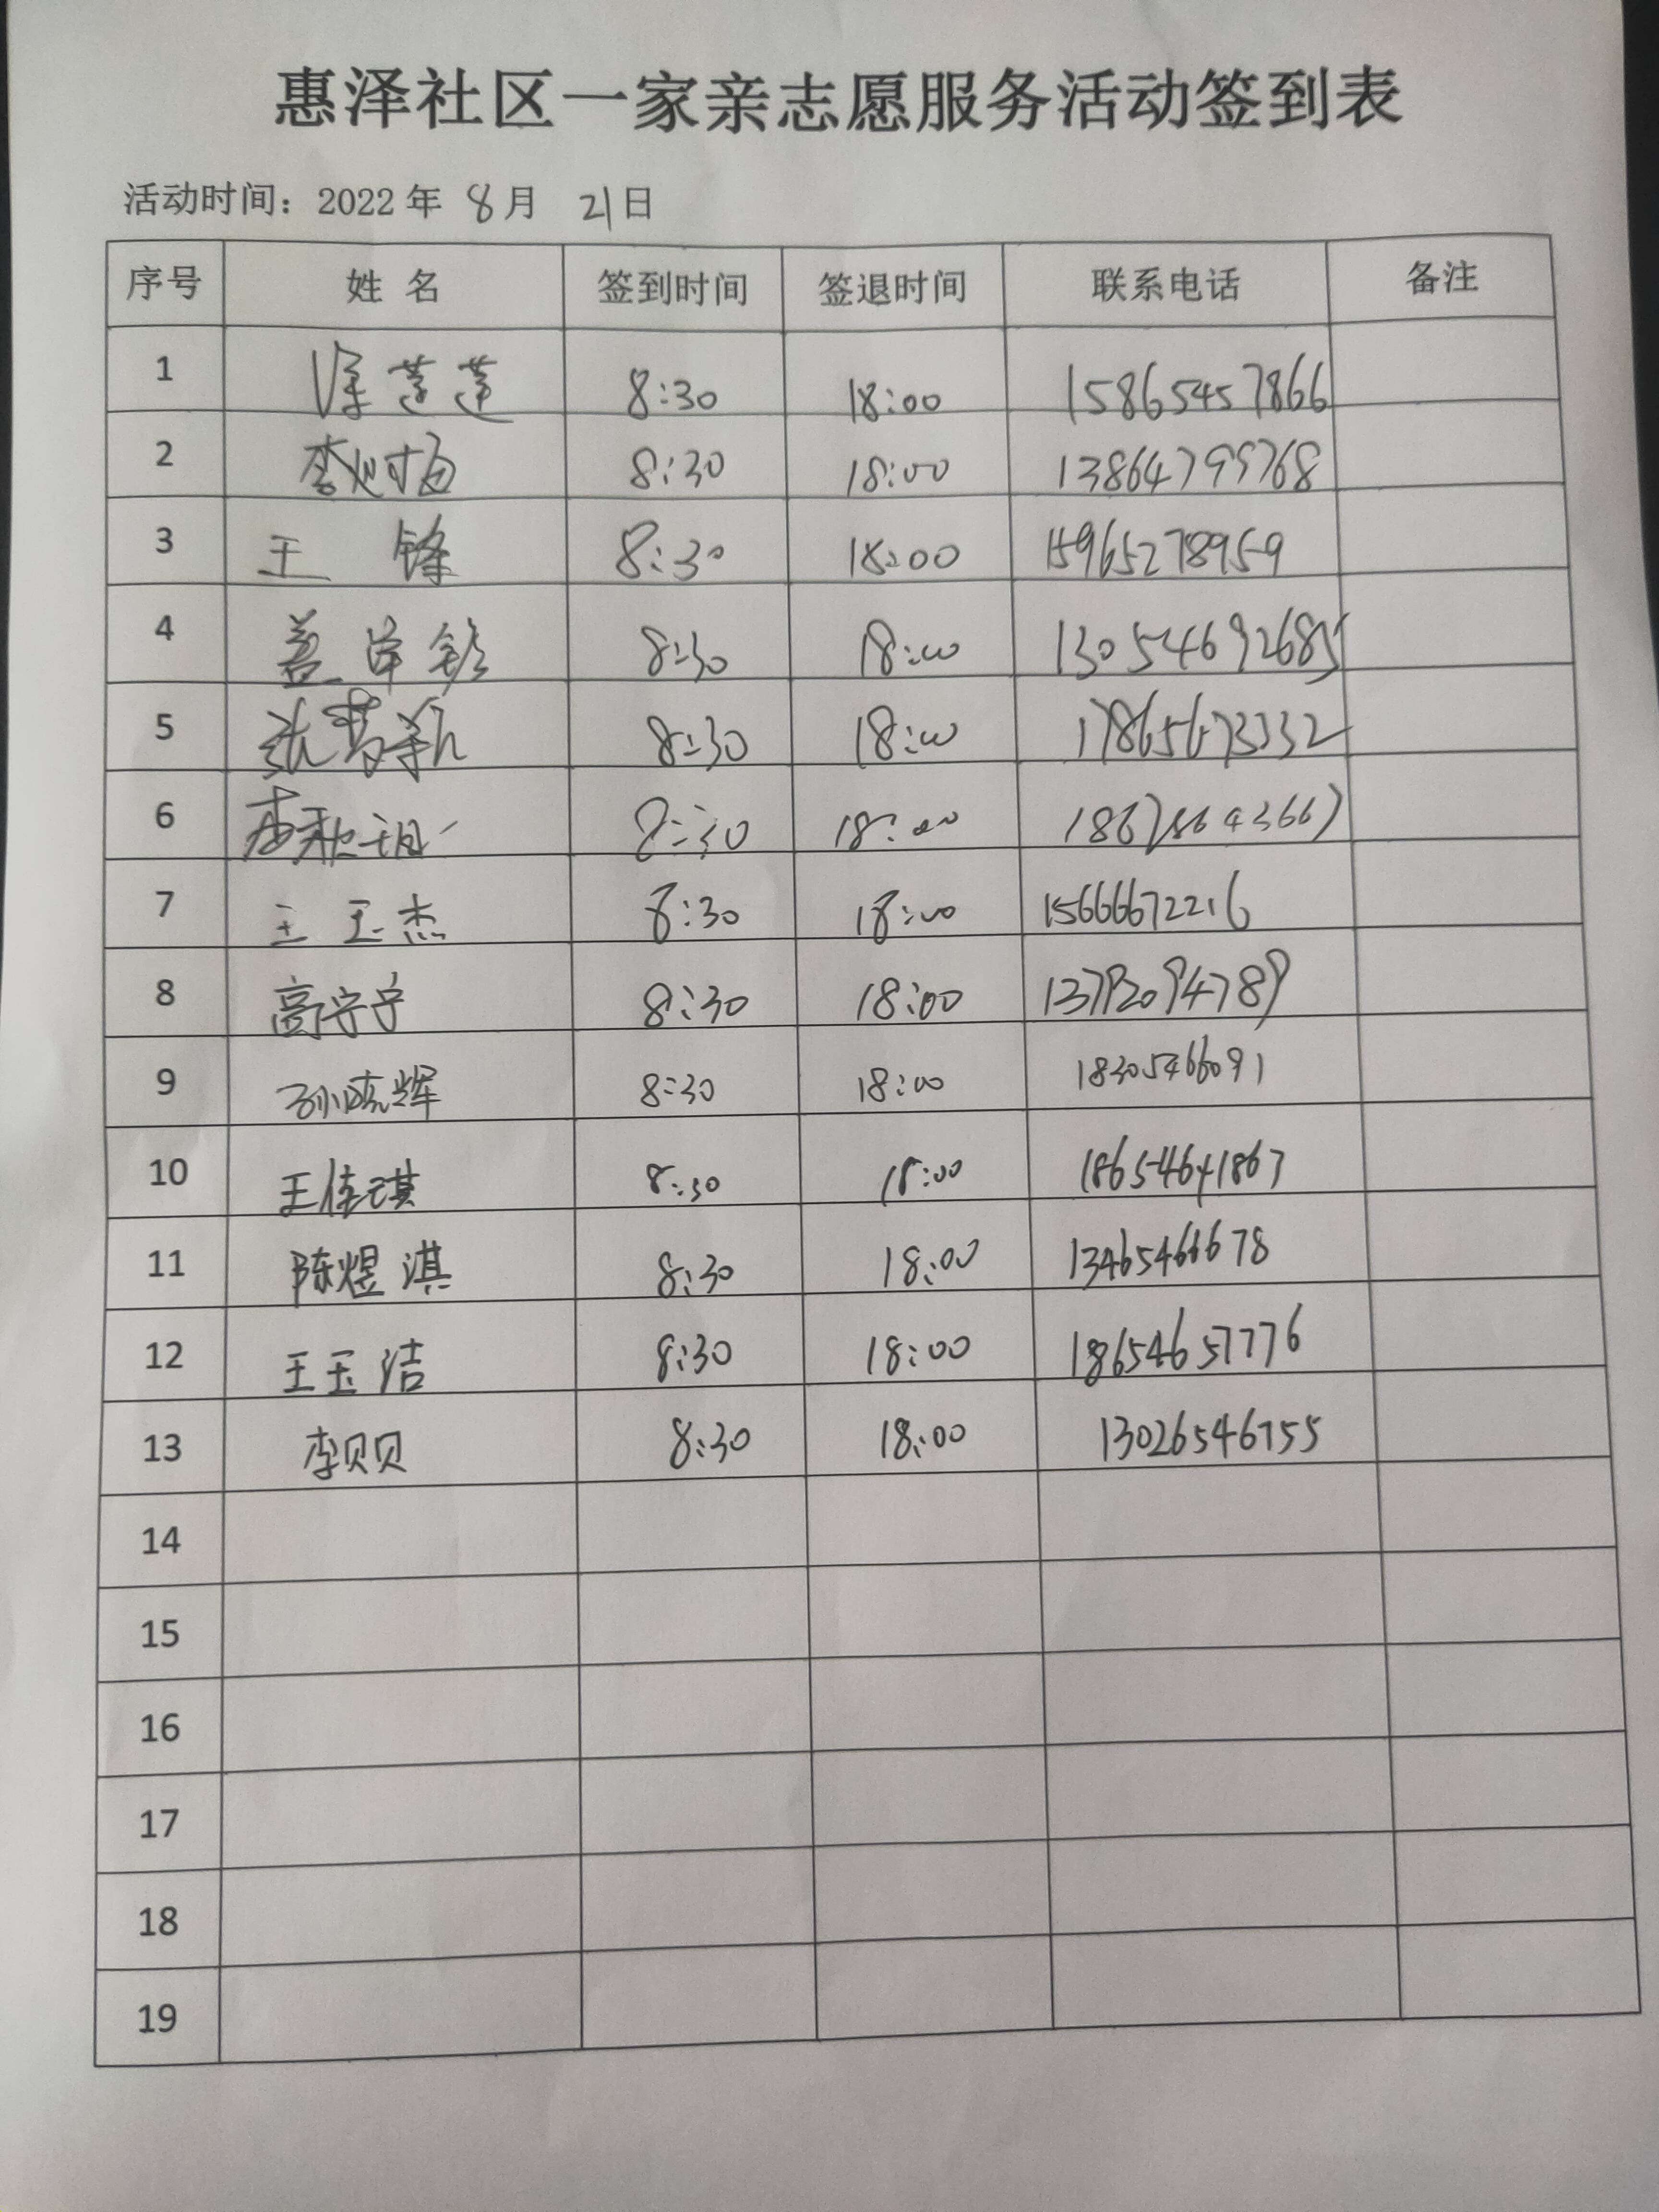 惠泽社区一家亲志愿服务活动签到表
活动时间：2022年 8月 21日
序号 姓名 签到时间 签退时间 联系电话 备注
1 徐莲莲 8:30 18:00 15865457866
2 8:30 18:00 13864799768
3 王锋 8:30 18:00 15965278959
4 8:30 18:00 13054692685
5 8:30 18:00 17865673332
6 8:30 18:00
7 王玉杰 8:30 18:00 15666672216
8 高宁宁 8:30 18:00 13792094789
9 孙晓辉 8:30 18:00 18305466091
10 王佳琪 8:30 18:00 18654641867
11 陈煜淇 8:30 18:00 13465466678
12 王玉洁 8:30 18:00 18654657776
13 李贝贝 8:30 18:00 13026546755
14
15
16
17
18
19